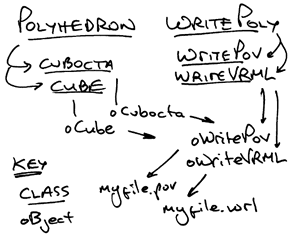 POLYHEDRON WRITEPOLY
CUBOCTA WRITEPOV
CUBE WRITEVRML
oCubocta
oCube
oWritePov
oWriteVRML
KEY
CLASS
oBject
myfile.pov
myfile.wrl